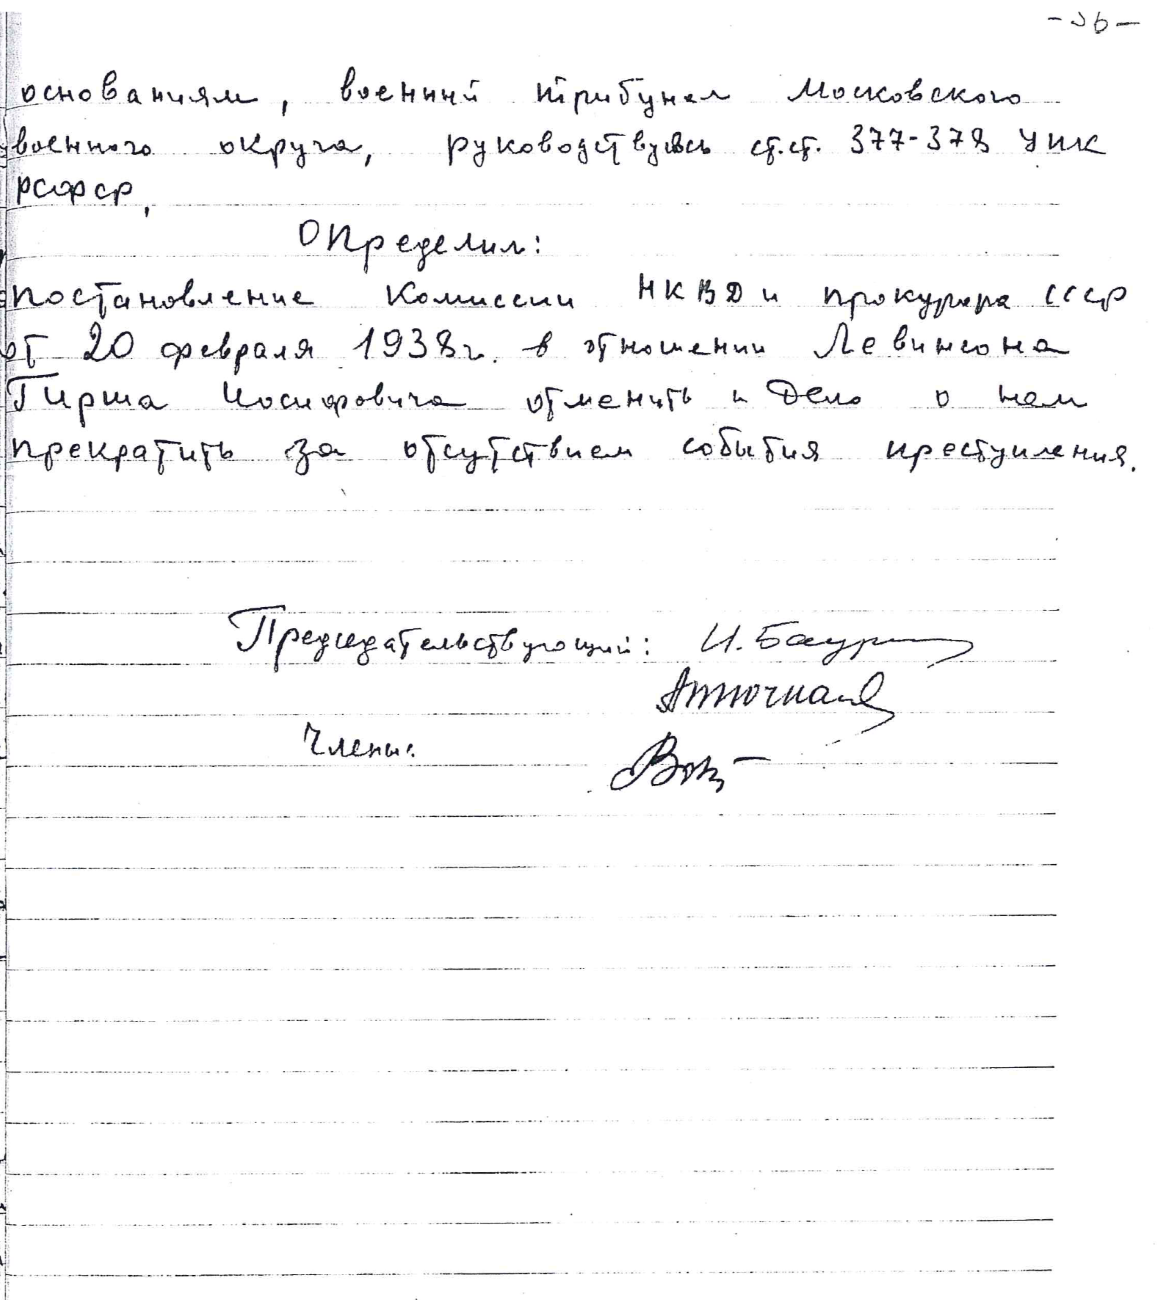 основаниям, военный трибунал Московского
военного округа, руководствуясь ст.ст. 377-378 УПК
РСФСР,
Определил:
постановление Комиссии НКВД и прокурора СССР
от 20 февраля 1938г. в отношении Левинсона
Гирша Иосифовича отменить и дело о нем
прекратить за отсутствием события преступления.
Председательствующий:
Члены: